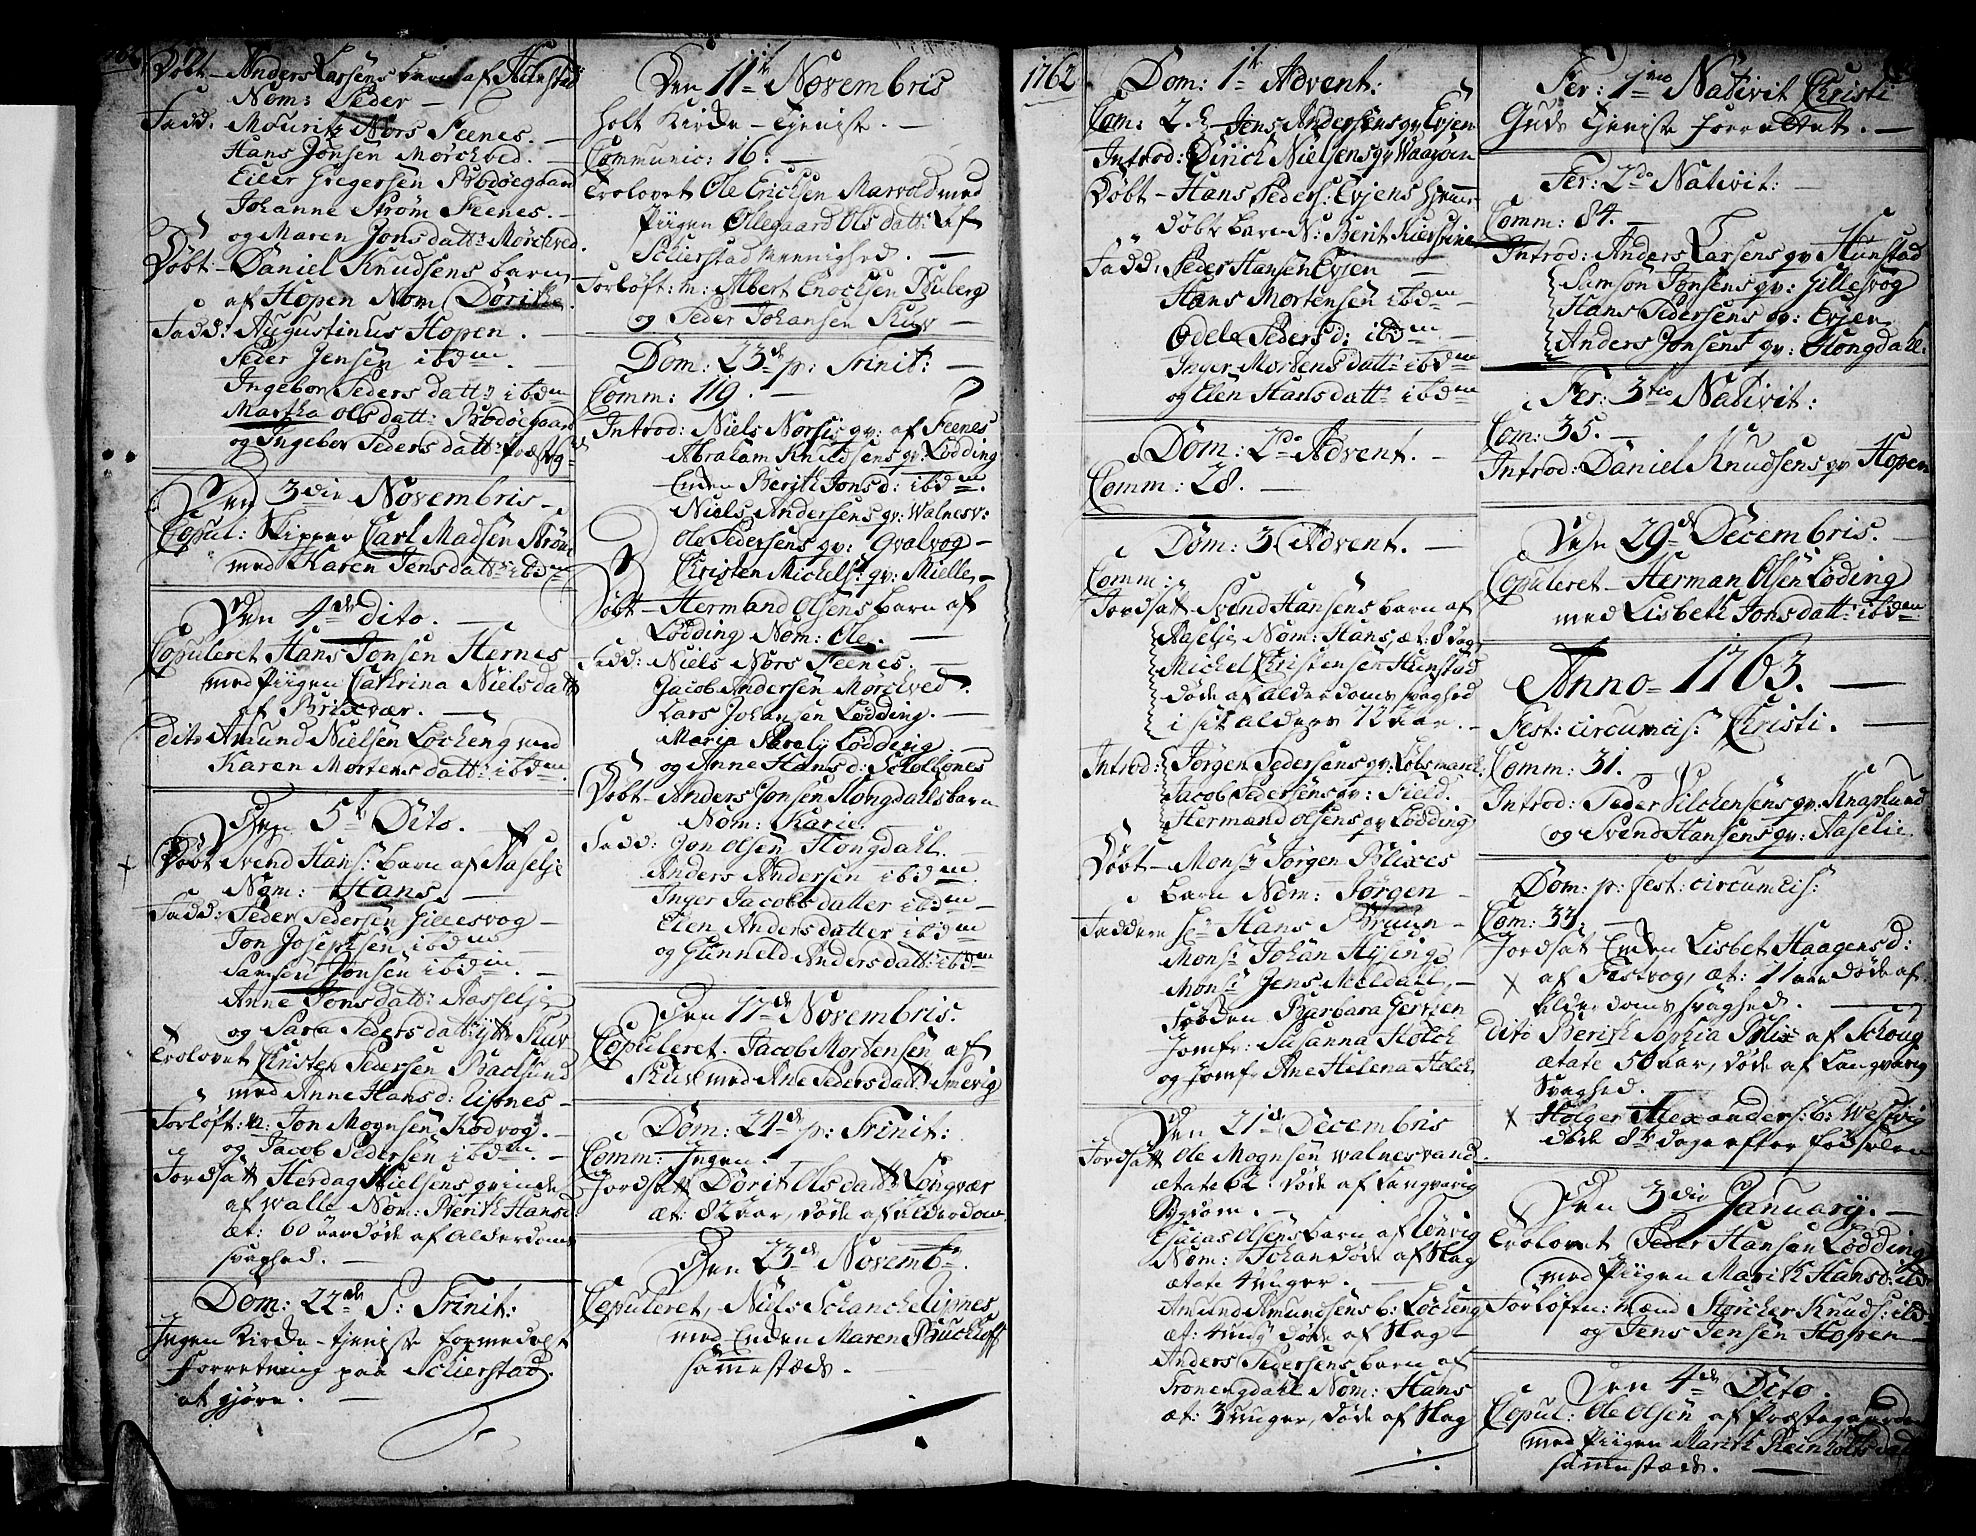 Døbt - Anders Larsens barn af Hunstad
Nom: Peder -
Fadd: Mouritz Nors Feenes. -
Hans Jonsen Mørchved. -
Eiler Gregersen Bodøegaard
Johanne Strøm Feenes. -
og Maren Jonsdattr: Mørchved.
Døbt - Daniel Knudsens barn
af Hopen Nom: Dorithe.
Fadd: Augustinus Hopen. -
Peder Jensen ibdm. -
Ingebor Pedersdattr: ibdm
Martha Olsdattr: Bodøegaard
og Ingebor Pedersdattr: Præstg:
Den 3die Novembris -
Copul: Skipper Carl Madsen Strøm
med Karen Jensdattr: ibdm
Den 4de dito. -
Copuleret Hans Jonsen Hernes
med Piigen Cathrina Nielsdattr
af Brixvær. -
dito Amund Nielsen Løcheng med
Karen Mortensdattr: ibdm.
Den 5te Dito. -
Døbt Svend Hans: barn af Aaselje
Nom: Hans. -
Fadd: Peder Pedersen Gillesvog -
Jon Josephsen ibdm
Samsen Jonsen ibdm. -
Anne Jonsdatt: Aasselje
og Sara Pedersdatt: ytt: Kuv
Trolovet Christen Pedersen Badsund
med Anne Hansd: Lipnes -
Forløft: m: Jon Mognsen Kodvog. -
og Jacob Pedersen ibdm. -
Jordsatt Herdag Nielsens qvinde
af Walle Nom: Berith Hansd:
æt: 60 aar døde af Alderdoms
svaghed. -
Dom: 22de P: Trinit:
Ingen Kirke-tjeniste formedelst
Forretning paa Schierstad
at gjøre. -
Den 11te Novembris
holt Kirke-Tjeniste. -
Communic: 16. -
Trolovet Ole Erichsen Marvold med
Piigen Øllegaard Olsdatt: af
Schierstad Meenighed. -
Forløft: m: Albert Enochsen Tuberg
og Peder Johansen Kuv -
Dom: 23de p: Trinit: -
Comm: 119. -
Introd: Niels Norsis qv: af Feenes
Abraham Knudsens qv: Lødding
Enken Berith Jonsd: ibdm.
Niels Andersens qv: Walnesv:
Ole Pedersens qv: Qvalvog -
Christen Michels: qv: Mielle -
Døbt - Hermand Olsens barn af
Lødding Nom: Ole. -
Fadd: Niels Nors Feenes. -
Jacob Andersen Mørchved. -
Lars Johansen Lødding. -
Maria Lødding. -
og Anne Hansd: Schottones
Døbt - Anders Jonsen Hongdahls barn
Nom: Karie. -
Fadd: Jon Olsen Hongdahl.
Anders Andersen ibdm.
Inger Jacobsdatter ibdm -
Elen Andersdatter ibdm
og Gunneld Andersdatt: ibdm
Den 17de Novembris.
Copuleret. Jacob Mortensen af
Kuv med Ane Pedersdatt Smevig
Dom: 24de p: Trinit:
Comm: Ingen.
Jordsatt Dorit Olsdatt Longvær
æt: 82 aar, døde af alderdom.
Den 23de Novembr.
Copuleret, Niels Schanche Lipnes
med Enken Maren Buchhoff
sammestæds. -
1762
Dom: 1te Advent:
Com: 2. Jens Andersens qv Evjen
Introd: Dirich Nielsens qv Waagøen
Døbt - Hans Peders: Evjens hjemme-
døbt barn N: Berit Kierstine
Fadd: Peder Hansen Evjen -
Hans Mortensen ibdm -
Odel Pedersd: ibdm -
Inger Mortensdatt: ibdm
og Elen Hansdatt: ibdm
Dom: 2do Advent. -
Comm: 28. -
Dom: 3. Advent. -
Comm:
Jordsatt Svend Hansens barn af
Aaselje Nom: Hans, æt: 8 uger
Michel Christensen Hunstad
døde af alderdoms svaghed
i sit alders 72 aar. -
Introd: Jørgen Pedersens qv: Løbsmark
Jacob Pedersens qv: Field.
Hermand Olsens qv Lødding
Døbt - Monsr Jørgen Blixes
barn Nom: Jørgen -
Faddere Sr Hans Bruun -
Monsr Johan Hysing
Monsr Jens Meldall, -
Frøken Barbara Gertsen
Jomfr: Susanna Holch
og Jomfr Ane Helena Holch.
Den 21de Decembris
Jordsatt Ole Mognsen Walnesvand.
ætate 62. døde af Langvarig
Sygdom. -
Esaias Olsens barn af Tenvig
Nom: Johan døde af Slag
ætate 4 uger. -
Amund Amundsens b: Løcheng
æt: 4 ug: døde af Slag -
Anders Pedersens barn af
Tronengdahl Nom: Hans
æt: 3 uuger, døde af Slag
Fer: 1ma Nativit Christi
Guds Tjeniste forrettet. -
Fer: 2da Nativit: -
Comm: 84. -
Introd: Anders Larsens qv Hunstad
Samson Jonsens qv: Gillesvog
Hans Pedersens qv: Evjen
Anders Jonsens qv: Hongdahl.
Fer: 3tia Nativit:
Com: 35. -
Introd: Daniel Knudsens qv Hopen
Den 29de Decembris. -
Copuleret - Herman Olsen Løding
med Lisbeth Jonsdatt: ibdm.
Anno 1763. -
Fest: circumcis: Christi. -
Comm: 31. -
Introd: Peder Vilchensens qv: Knaplund
og Svend Hansens qv: Aaselie.
Dom: p: fest: circumcis:
Com: 33. -
Jordsat Enken Lisbet Haagensd:
af Festvog, æt: 71 aar døde af
alderdoms svaghed. -
dito Berith Sophia Blix af Schoug
ætate 56 aar, døde af Langvarig
Svaghed.
Holger Alexanders: b: Westvig
døde 8te dage efter fødselen
Den 3die January. -
Trolovet Peder Hansen Lødding
med Piigen Marith Hansd: ibd:
Forløftn: mænd Størcher Knuds: ibd:
og Jens Jensen Hopen -
Den 4de Dito.
Copul: Ole Olsen af Præstegaarden
med Piigen Marith Reinholtsdatt
sammestæds. -